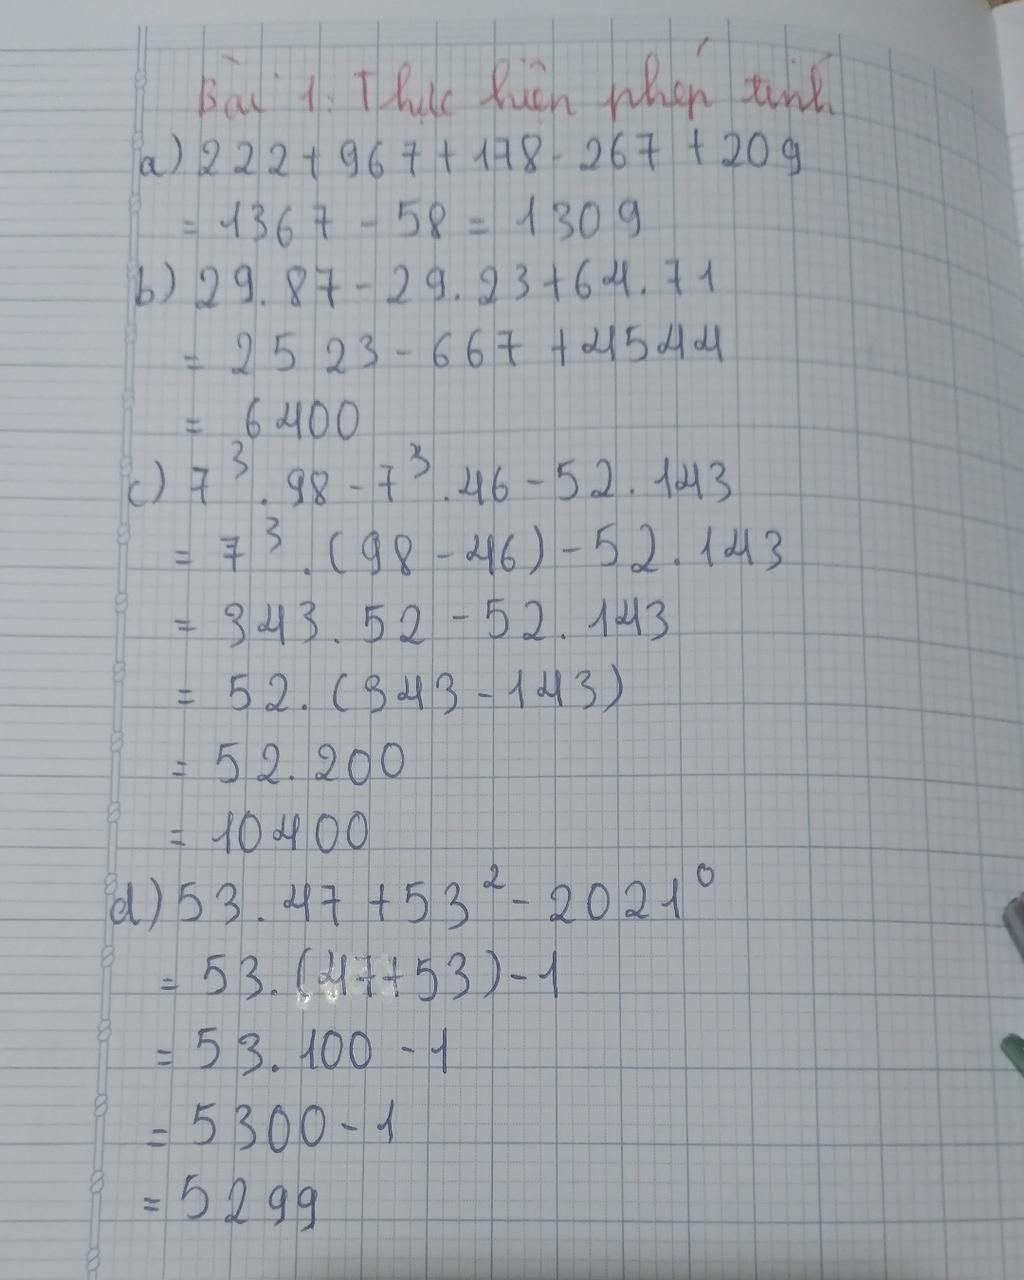 Bài 1: Thực hiện phép tính
a) 222 + 967 + 178 - 267 + 209
= 1367 - 58 = 1309
b) 29.87 - 29.23 + 64.71
= 2523 - 667 + 4544
= 6400
c) 7³.98 - 7³.46 - 52.143
= 7³.(98 - 46) - 52.143
= 343.52 - 52.143
= 52.(343 - 143)
= 52.200
= 10400
d) 53.47 + 53² - 2021⁰
= 53.(47 + 53) - 1
= 53.100 - 1
= 5300 - 1
= 5299